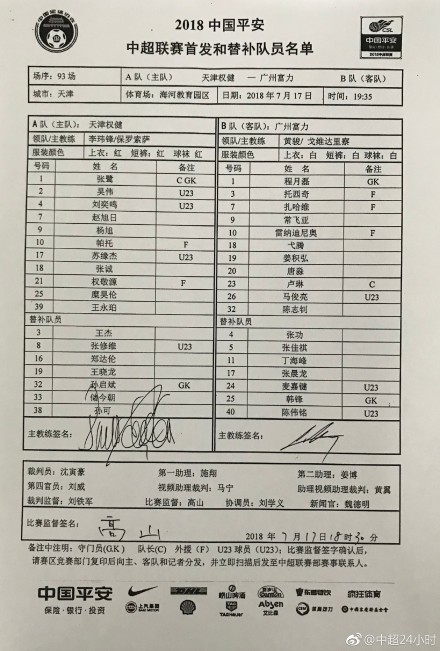 2018 中国平安
中超联赛首发和替补队员名单
CSL
中国平安
场序：93 场 A 队（主队） 天津权健 — 广州富力 B 队（客队）
城市：天津 体育场：海河教育园区 日期：2018 年 7 月 17 日 时间：19:35
A 队（主队） 天津权健 B 队（客队）：广州富力
领队/主教练 李玮锋/保罗索萨 领队/主教练 黄骏/ 戈维达里察
服装颜色 上衣：红 短裤：红 球袜 红 服装颜色 上衣：白 短裤：白 球袜：白
号码 姓 名 备注 号码 姓 名 备注
1 张鹭 C GK 1 程月磊 GK
2 吴伟 U23 3 托西奇 F
4 刘奕鸣 U23 7 扎哈维 F
7 赵旭日 9 常飞亚
9 杨旭 10 雷纳迪尼奥 F
10 帕托 F 18 弋腾
17 苏缘杰 U23 19 姜积弘
18 张诚 20 唐淼
21 权敬源 F 23 卢琳 C
25 糜昊伦 26 马俊亮 U23
39 王永珀 32 陈志钊
替补队员 替补队员
3 王杰 4 张功
8 张修维 U23 5 张佳祺
16 郑达伦 11 丁海峰
19 王晓龙 17 张晨龙
32 孙启斌 GK 24 麦嘉健 U23
33 储今朝 25 韩锋 GK
38 孙可 40 陈伟铭 U23
主教练签名： 主教练签名：
裁判员：沈寅豪 第一助理：施翔 第二助理：姜博
第四官员：刘威 视频助理裁判：马宁 助理视频助理裁判：黄翼
裁判监督：刘铁军 比赛监督：高山 协调员：刘学义 新闻官：魏德明
比赛监督签名： 高山 2018 年 7 月 17 日 18 时 30 分
备注中注明：守门员(GK） 队长(C） 外援（F）U23 球员（U23）；比赛监督签字确认后，
请赛区竞赛部门复印后向主、客队和记者分发，并立即扫描后发至中超联赛部赛事联系人。
中国平安
保险·银行·投资
上汽集团
SHELL
崂山啤酒
TAGHeuer
Absen
艾比森
@中超24小时